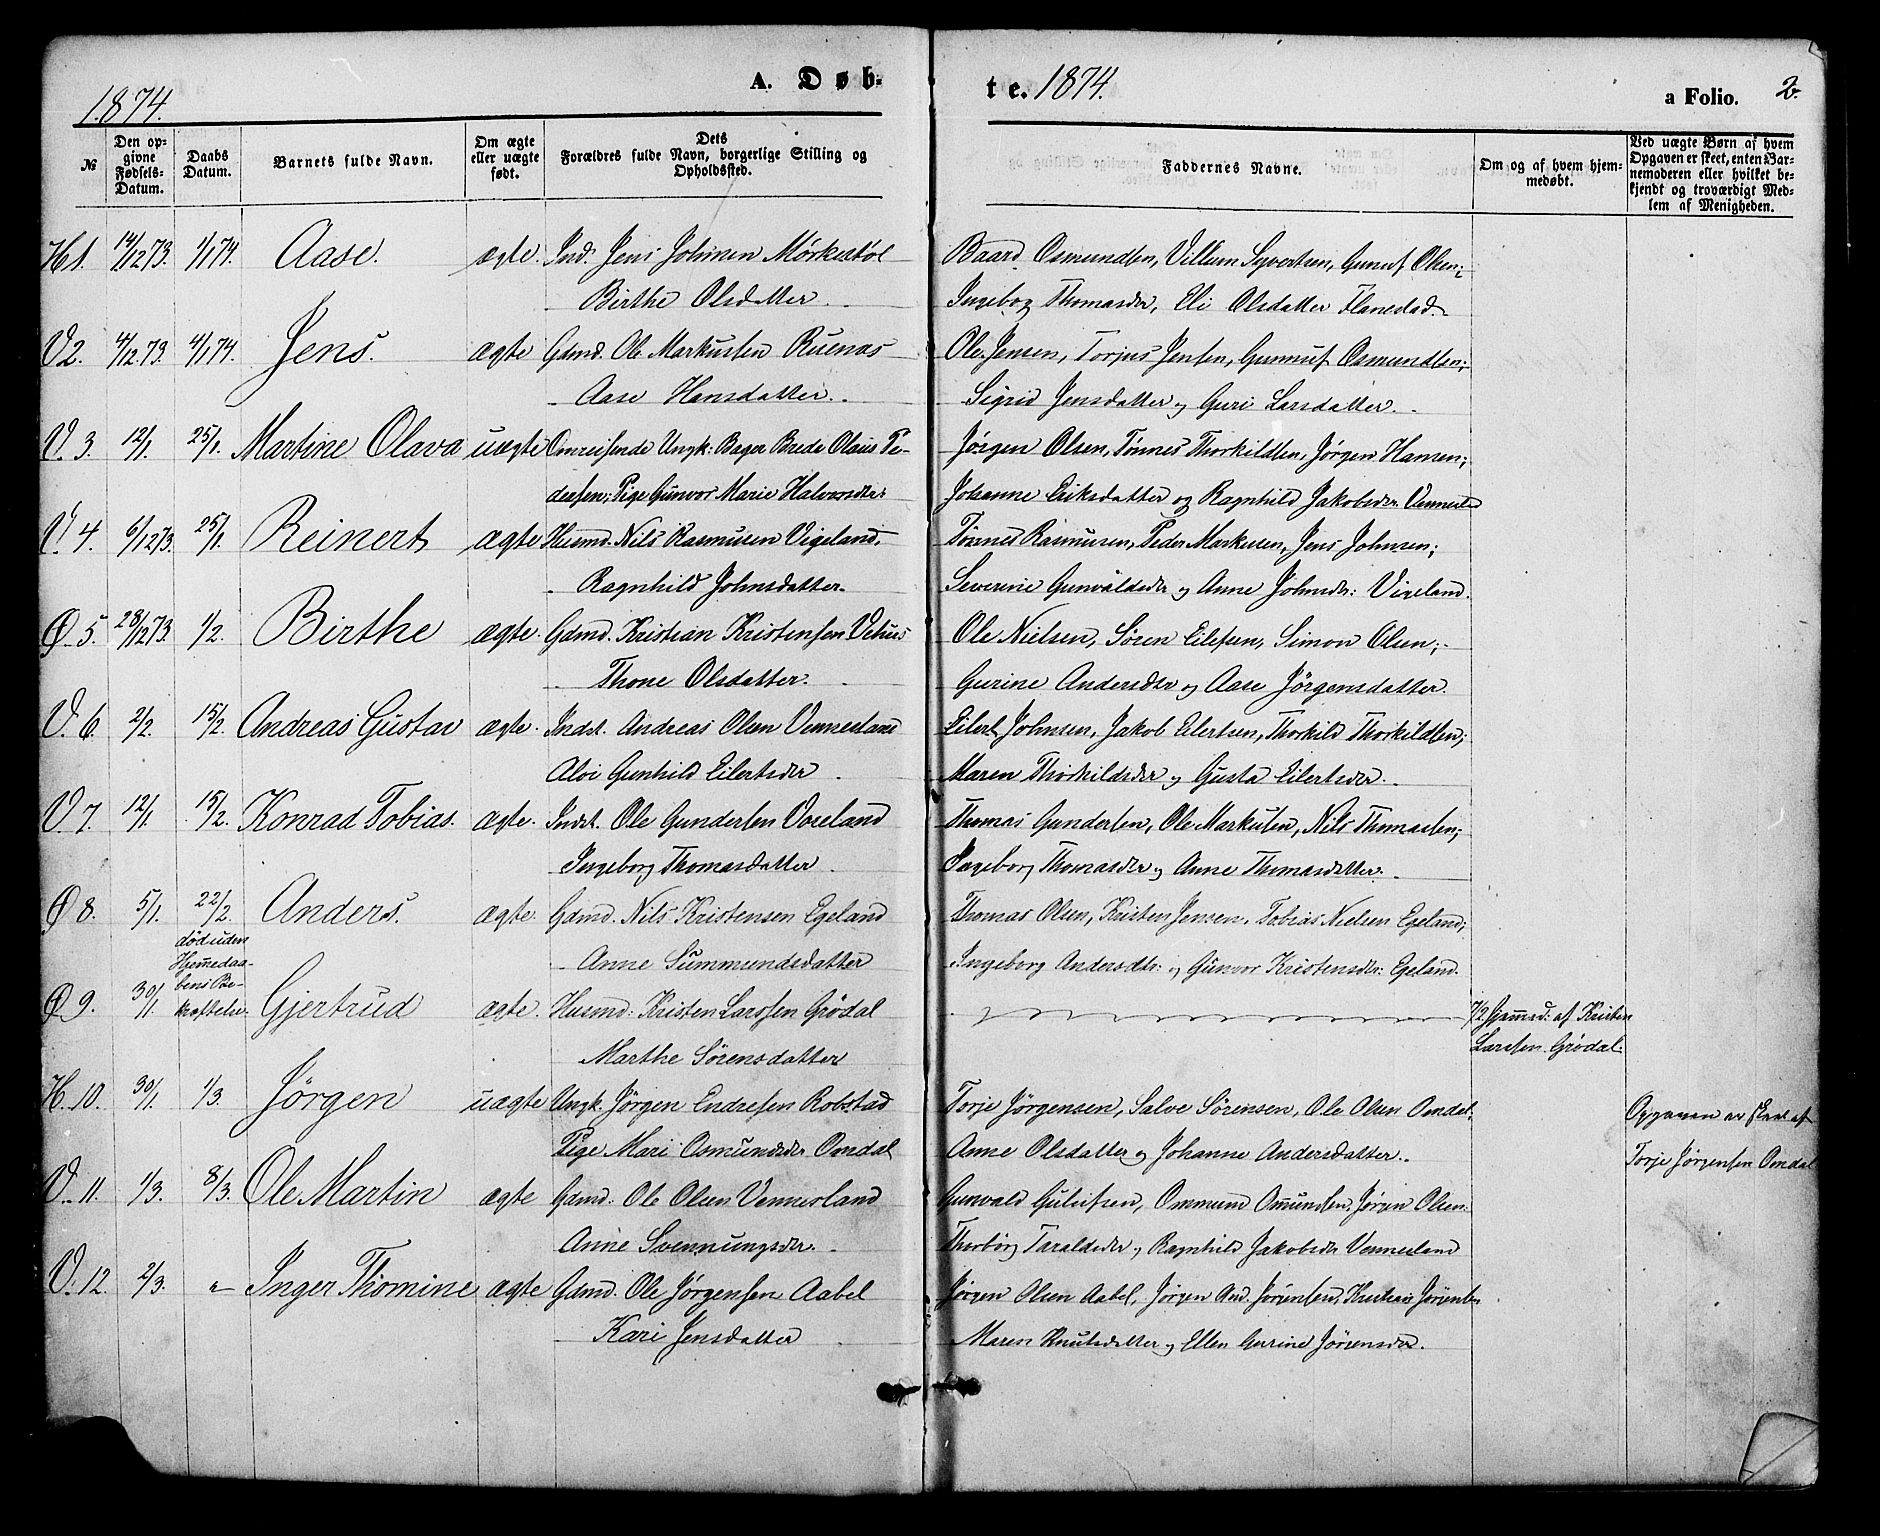 1874.
A. Døb-
te. 1874.
a Folio. 2.
№
Den opgivne Fødsels-Datum.
Daabs Datum.
Barnets fulde Navn.
Om ægte eller uægte født.
Dets Forældres fulde Navn, borgerlige Stilling og Opholdssted.
Faddernes Navne.
Om og af hvem hjemmedøbt.
Ved uægte Børn af hvem Opgaven er skeet, enten Barnemoderen eller hvilket bekjendt og troværdigt Medlem af Menigheden.
H1. 14/12 73. 1/1 74. Aase. ægte. Ind. Jens Johnsen Mørkestøl Baard Osmundsen, Villum Syvertsen, Gunuf Olsen;
Birthe Olsdatter. Ingeborg Thomasdr, Eli Olsdatter Flanestad.
V2. 4/12.73. 4/1 74. Jens. ægte Gdmd. Ole Markussen Ruenæs Ole Jensen, Torjus Jensen, Gunnuf Osmundsen;
Aase Hansdatter. Sigrid Jensdatter og Guri Larsdatter.
V. 3. 12/1. 25/1. Martine Olava uægte Omreisende Ungk: Bager Brede Olaus Pe- Jørgen Olsen, Tønnes Thorkildsen, Jørgen Hansen;
dersen; Pige Gunvor Marie Halvorsdtr: Johanne Eriksdatter og Ragnhild Jakobsdr. Vennesld
V. 4. 6/12 73. 25/1. Reinert ægte Husmd. Nils Rasmusen Vigeland. Tønnes Rasmusen, Peder Markusen, Jens Johnsen;
Ragnhild Johnsdatter. Severine Gunvaldsdr og Anne Johnsdr: Vigeland.
Ø. 5. 28/12 73. 1/2. Birthe ægte. Gdmd. Kristian Kristensen Vehus Ole Nielsen, Søren Eilefsen, Simon Olsen;
Thone Olsdatter. Gurine Andersdtr og Aase Jörgensdatter.
V. 6. 2/2. 15/2. Andreas Gustav ægte. Indst. Andreas Olsen Vennesland Eilert Johnsen, Jakob Eilertsen, Thorkild Thorkildsen;
Alvi Gunhild Eilertsdr Maren Thorkildsdr og Gusta Eilertsdr.
V. 7. 12/1. 15/2. Konrad Tobias. ægte. Indst. Ole Gundersen Voreland Thomas Gundersen, Ole Markusen, Nils Thomassen;
Ingeborg Thomasdatter Ingeborg Thomasdr og Anne Thomasdatter.
Ø 8. 5/1. 22/2. Anders. ægte. Gdmd. Nils Kristensen Egeland Thomas Olsen, Kristen Jensen, Tobias Nielsen Egeland;
Anne Summundsdatter Ingeborg Andersdtr: og Gunvor Kristensdtr: Egeland.
Ø 9. 30/1. død uden Hjemedaabens Bekræftelse. Gjertrud ægte. Husmd: Kristen Larssen Grødal 7/2 Hjemmed: af Kristen
Marthe Sørensdatter Larssen Grødal.
H. 10. 30/1. 1/3. Jørgen uægte Ungk. Jørgen Endresen Robstad Torje Jørgensen, Salve Sörensen, Ole Olsen Omdal; Opgaven er skeet af
Pige Mari Osmundsdr Omdal Anne Olsdatter og Johanne Andersdatter. Torje Jørgensen Omdal
V. 11. 1/3. 8/3. Ole Martin ægte Gdmd: Ole Olsen Vennesland Gunvald Gulufsen, Ommund Omundsen, Jørgen Olsen;
Anne Svennungsdr. Thorbörg Taraldsdr og Ragnhild Jakobsdr Vennesland
V. 12. 2/3. „ Inger Thomine ægte Gdmd. Ole Jørgensen Aabel Jørgen Olsen Aabel, Jørgen And. Jørgensen, Kristian Jørgensen
Kari Jensdatter Maren Knutsdatter og Ellen Gurine Jørgensdr.